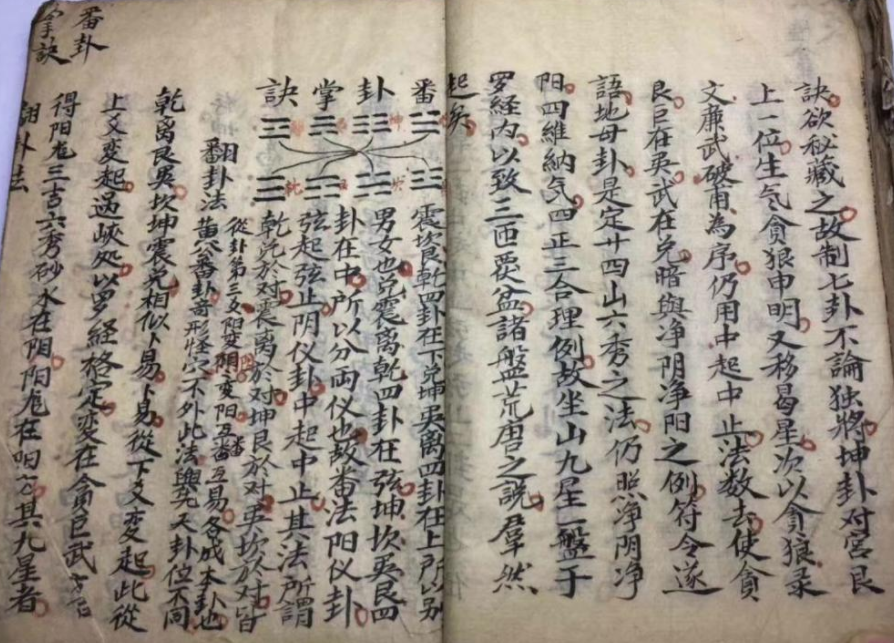 訣欲秘藏之故制七卦不論独將坤卦对宮艮
上一位生气貪狼申明又移曷星次以貪狼
文廉武破甫為序仍用中起中止法数去使貪
艮巨在巽武在兌暗與净阴净阳之例符令遂
語地母卦是定廿四山六秀之法仍照净阴净
阳四維納气四正三合理例故坐山九星一盤于
罗経内以致三匝盆諸盤荒唐之説羣然
起矣
番卦掌訣
震坎艮乾四卦在下兌坤巽离四卦在上所以别
男女也兌震离乾四卦在弦坤坎巽艮四
卦在中所以分両仪也故番法阳仪卦
弦起弦止阴仪卦中起中止其法所謂
乾兌於对震离於对坤艮於对巽坎於对皆
從卦第三爻阳变阴阴变阳互番互易各成本卦也
黄公番卦奇形怪穴不外此法與先天卦位不同
翻卦法
乾离艮巽坎坤震兌相似卜易卜易從下爻变起此從
上爻变起過峽処以罗経格定变在貪巨武
得阳龙三吉六秀砂水在阴阳龙在其九星者
翻卦法
番卦
掌訣